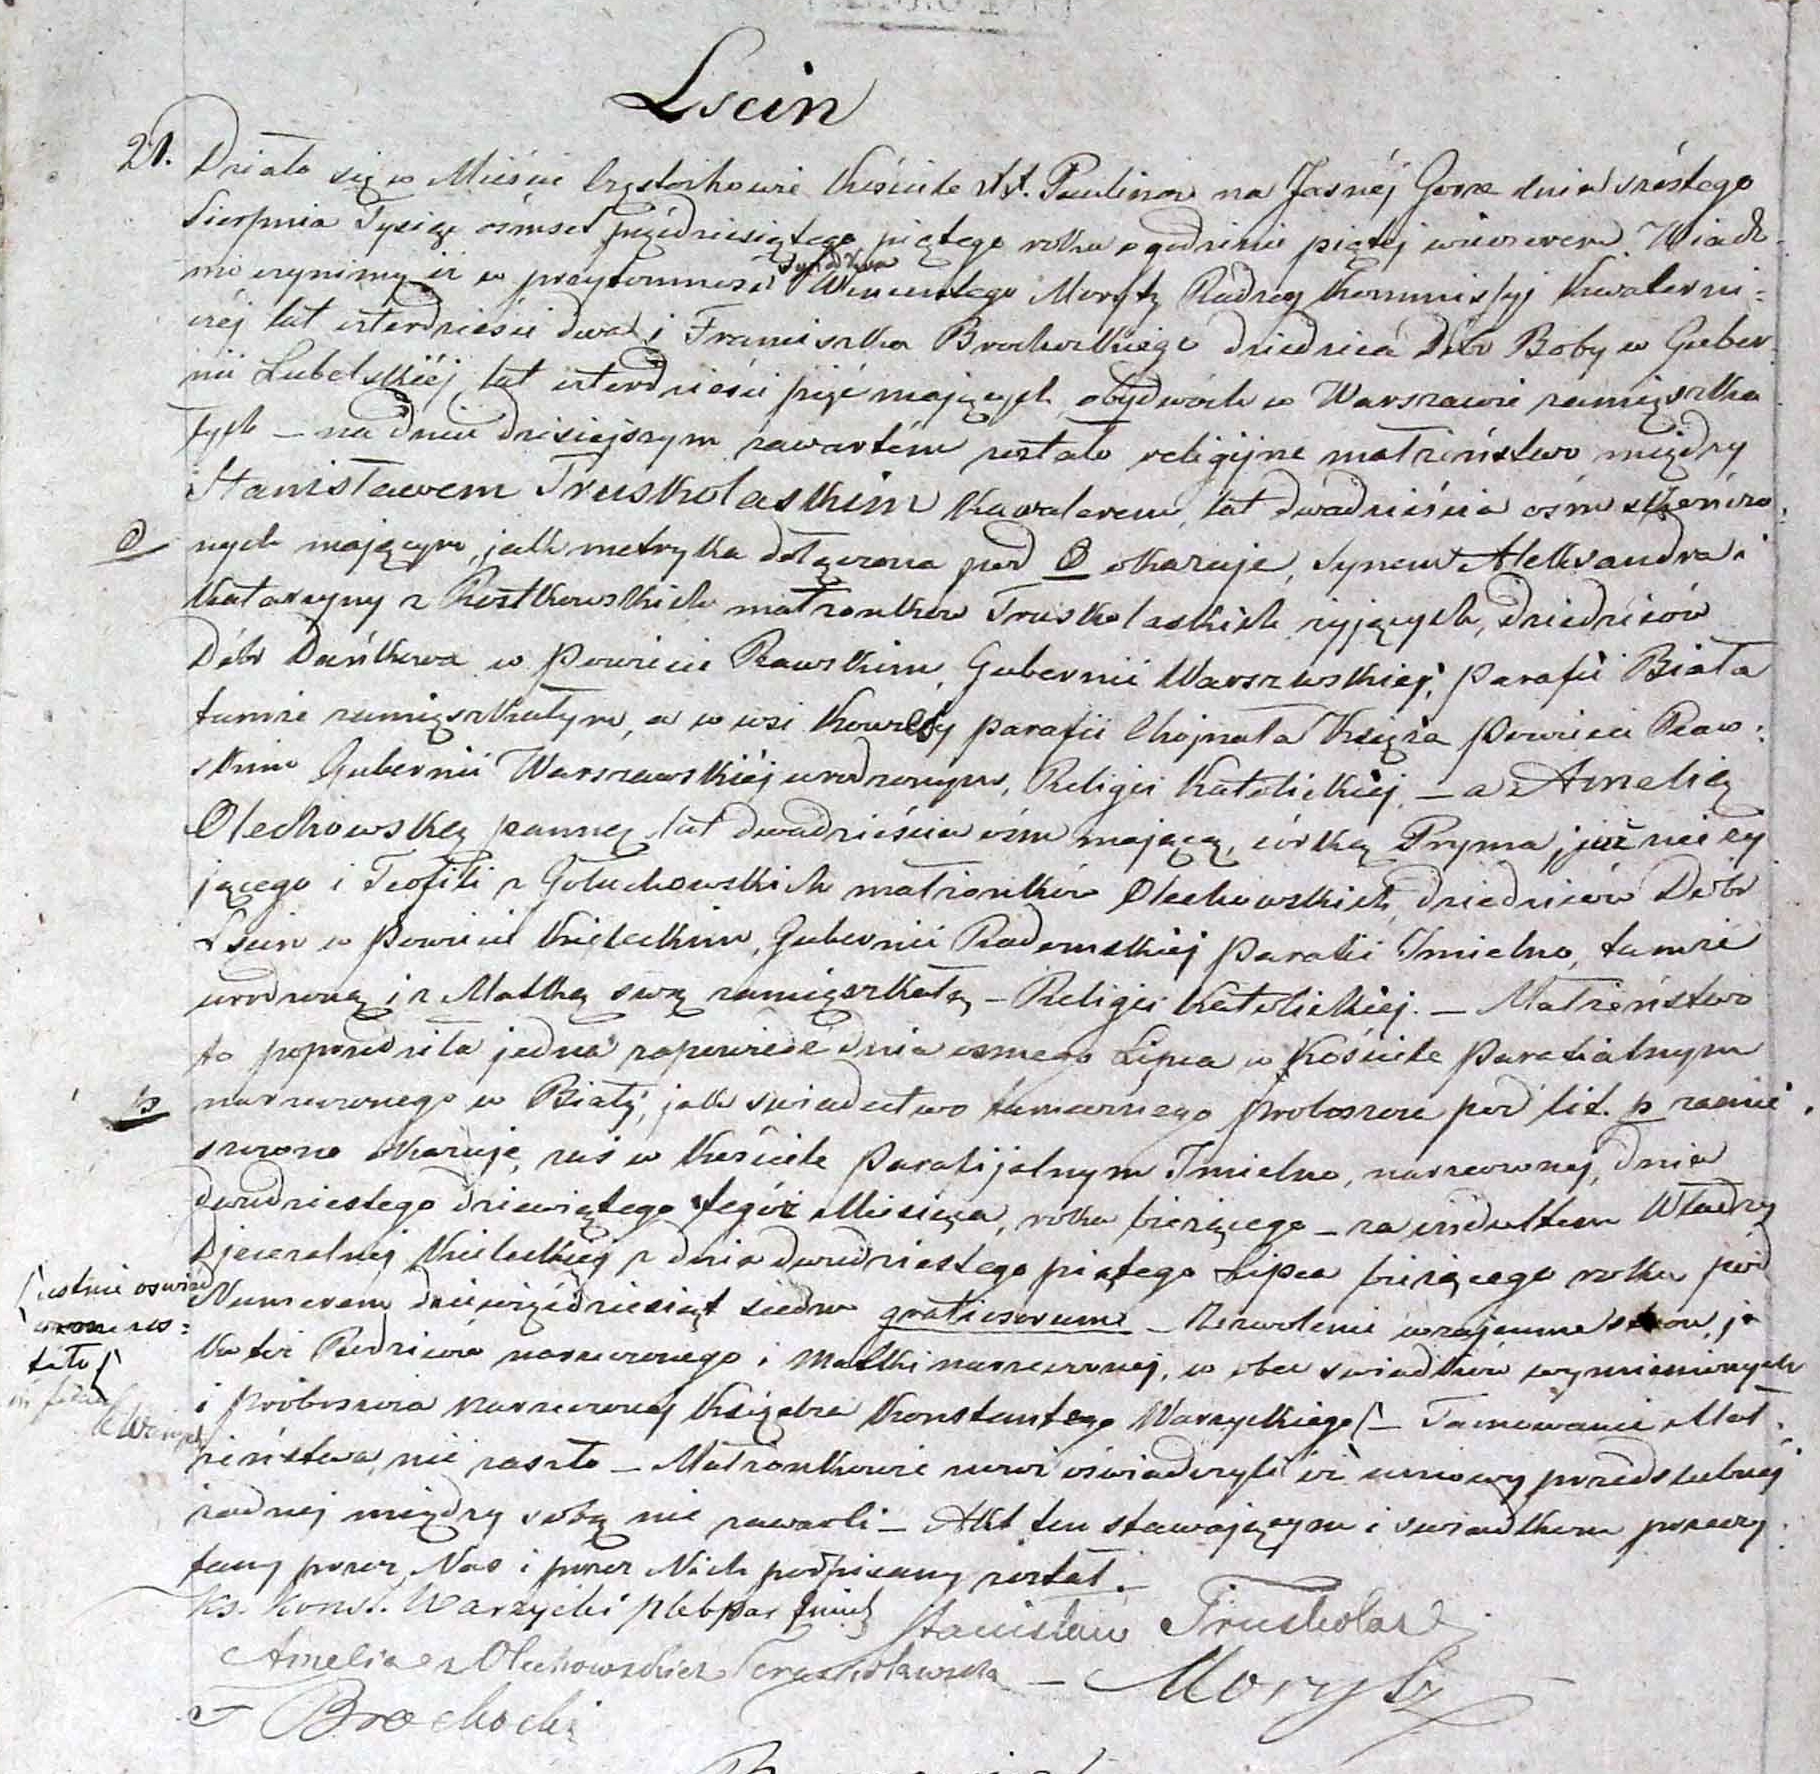 Lscin
21. Działo się w Mieście Częstochowie Kościele XX. Paulinów na Jasnéj Gorze dnia szóstego
Sierpnia Tysiąc ośmset pięćdziesiątego piątego roku o godzinie piątej wieczorem. Wiado-
mo czynimy iż w przytomności Świadków Wincentego Morytz Radzcy Kommissyj Kwaterni-
czéj lat czterdzieści dwa i Franciszka Brochockiego dziedzica Dóbr Boby w Guber-
nii Lubelskiéj lat czterdzieści pięć mających, obydwóch w Warszawie zamięszka
łych – na dniu dzisiejszym zawartém zostało religijne małżeństwo między
Stanisławem Truskolaskim Kawalerem, lat dwadzieścia ośm skończo-
nych mającym, jak metryka dołączona pod O okazuje, Synem Aleksandra i
Katarzyny z Rostkowskich małżonków Truskolaskich żyjących, dziedziców
Dóbr Dańkowa w Powiecie Rawskim, Gubernii Warszwskiej, Parafii Biała
tamże zamięszkałym, a w wsi Kowiesy parafii Chojnata Księża Powiecie Raw-
skim Gubernii Warszawskiéj urodzonym, Religii Katolickiéj – a Amelią
Olechowską panną lat dwadzieścia ośm mającą, córką Pryma, już nie ży
jącego i Teofili z Gołuchowskich małżonków Olechowskich, dziedziców Dóbr
Lscin w Powiecie Kieleckim, Gubernii Radomskiéj Parafii Imielno, tamże
urodzoną i z Matką swą zamięszkałą – Religii Katolickiej. – Małżeństwo
to poprzedziła jedna zapowiedź dnia osmego Lipca w Kościele Parafialnym
narzeczonego w Biały, jak świadectwo tamecznego Proboszcza pod lit. p zamie
szczone okazuje, zaś w Kościele Parafijalnym Imielno, narzeczonej, dnia
dwudziestego dziewiątego tegóż Miesiąca, roku bieżącego – za indultem Władzy
Djecezalnej Kieleckiej z dnia dwudziestego piątego Lipca bieżącego roku pod
Numerem dziewięćdziesiąt siedm gratiosorum – Zezwolenie wzajemne stron, ja
[ustnie oswiad
czone zos-
tało]
ko też Rodziców narzeczonego i Matki narzeczonej, w obec świadków wymienionych
i Proboszcza narzeczonej Księdza Konstantego Warzyckiego [– Tamowanie Mał-
żeństwa nie zaszło – Małżonkowie nowi oświadczyli iż umowy przedslubnej
żadnej między sobą nie zawarli – Akt ten stawającym i swiadkom przeczy-
tany przez Nas i przez Nich podpisany został. –
Ks. Konst. Warzycki Stanisław Truskolaski
Amelia z Olechowskich Truskolawska – Morytz
F Brochocki